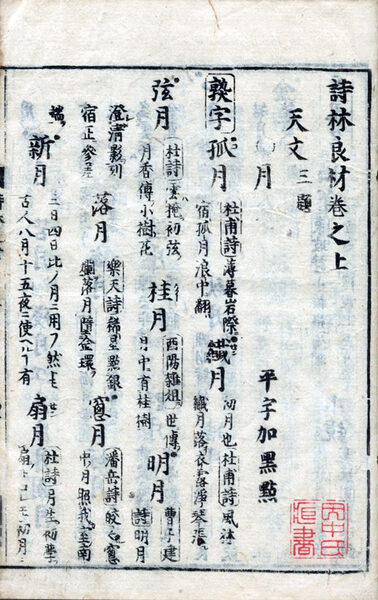 詩林良材巻之上
天文
月
平字加黒點
熟字
孤月 杜甫詩薄暮岩際
宿孤月浪中翻
纎月 初月也杜甫詩風林
纎月落衣露淨琴張
弦月 杜詩雲掩初弦
月香傳小樹花
桂月 酉陽雜俎世傳
月中有桂樹
明月 曹子建
詩明月
澄清影列
宿正參差
落月 樂天詩稀星點銀
礫落月墮金環
窓月 潘岳詩皎〻窓
中月照我室南
端
新月 三日四日比ノ月ニ用フ然
古人八月十五夜ニ使ヘル有
扇月 杜詩月生初學
扇